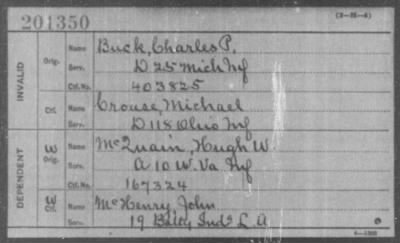 201350
(3-25-6)
INVALID
Orig.
Name Buck, Charles P.
Serv. D 25 Mich Inf
Ctf. No. 403825
Ctf.
Name Crouse, Michael
Serv. D 118 Ohio Inf
DEPENDENT
W
Orig.
Name McQuain, Hugh W.
Serv. A 10 W. Va Inf
Ctf. No. 167324
W
Ctf.
Name McHenry, John
Serv. 19 Batty Inda L. A